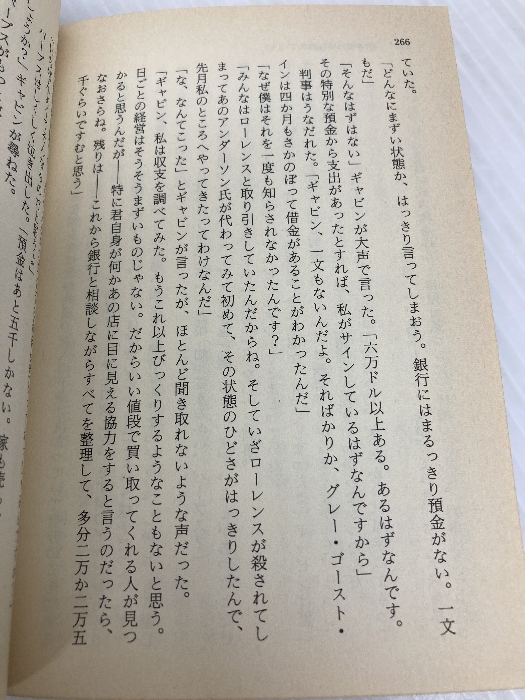 266
ていた。
「どんなにまずい状態か、はっきり言ってしまおう。銀行にはまるっきり預金がない。一文
もだ」
「そんなはずはない」ギャビンが大声で言った。「六万ドル以上ある。あるはずなんです。
その特別な預金から支出があったとすれば、私がサインしているはずなんですから」
判事はうなだれた。「ギャビン、一文もないんだよ。そればかりか、グレー・ゴースト・
インは四か月もさかのぼって借金があることがわかったんだ」
「なぜ僕はそれを一度も知らされなかったんです？」
「みんなはローレンスと取り引きしていたんだからね。そしていざローレンスが殺されてし
まってあのアンダーソン氏が代わってみて初めて、その状態のひどさがはっきりしたんで、
先月私のところへやってきたってわけなんだ」
「な、なんてこった」とギャビンが言ったが、ほとんど聞き取れないような声だった。
「ギャビン、私は収支を調べてみた。もうこれ以上びっくりするようなこともないと思う。
日ごとの経営はそうそうまずいものじゃない。だからいい値段で買い取ってくれる人が見つ
かると思うんだが――特に君自身が何かあの店に目に見える協力をすると言うのだったら、
なおさらね。残りは――これから銀行と相談しながらすべてを整理して、多分二万か二万五
千ぐらいですむと思う」
ギャビンが尋ねた。
「預金はあと五千しかない。